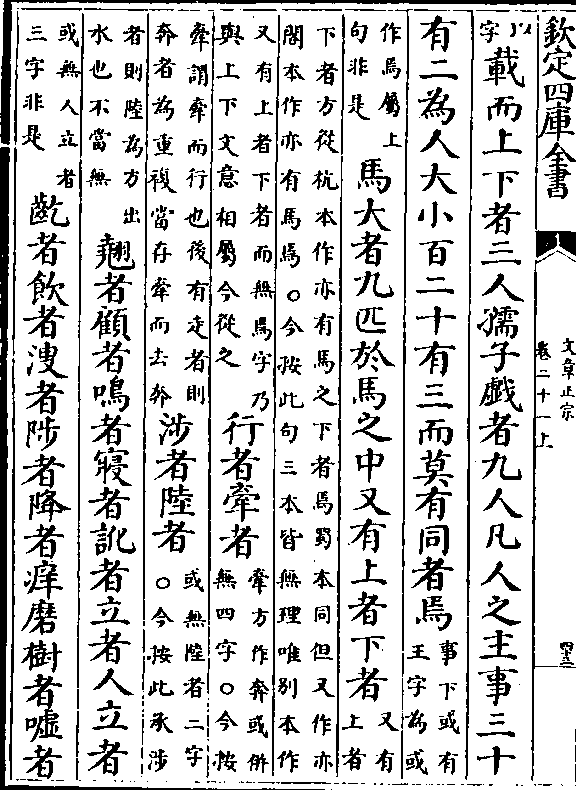 欽定四庫全書
文章正宗
卷二十一上
以字載而上下者三人孺子戲者九人凡人之主事三十
有二為人大小百二十有三而莫有同者焉事下或有王字為或
作焉屬上句非是馬大者九匹於馬之中又有上者下者又有上者
下者方從杭本作亦有馬之下者焉蜀本同但又作亦
閣本作亦有馬焉○今按此句三本皆無理唯別本作
又有上者下者而無馬字乃與上下文意相屬今從之行者牽者牽方作奔或併無四字○今按
牽謂牽而行也後有走者則奔者為重複當存牽而去奔涉者陸者或無陸者二字○今按此承涉
者則陸為方出水也不當無翹者顧者鳴者寢者訛者立者人立者
或無人立者三字非是齕者飲者溲者陟者降者痒磨樹者噓者